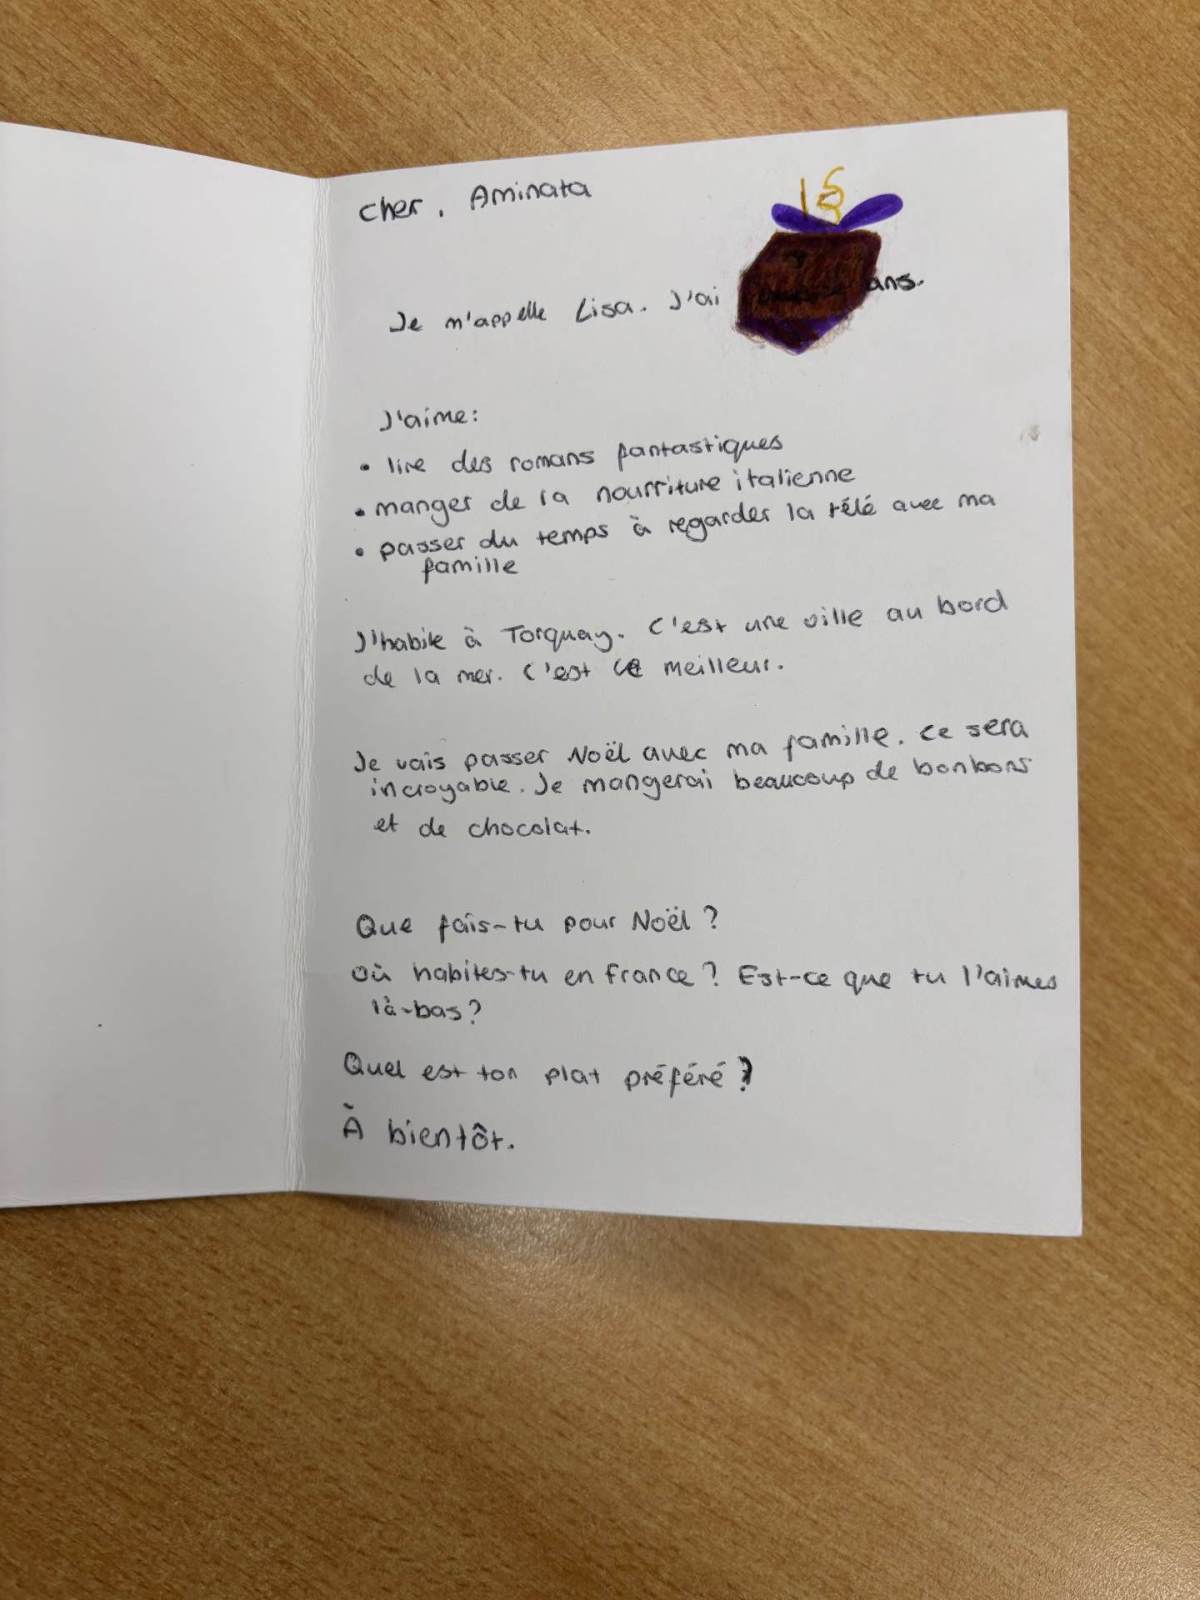 Cher, Aminata
15
Je m'appelle Lisa. J'ai ans.
J'aime:
• lire des romans fantastiques
• manger de la nourriture italienne
• passer du temps à regarder la télé avec ma
famille
J'habite à Torquay. C'est une ville au bord
de la mer. C'est le meilleur.
Je vais passer Noël avec ma famille. Ce sera
incroyable. Je mangerai beaucoup de bonbons
et de chocolat.
Que fais-tu pour Noël?
Où habites-tu en France? Est-ce que tu l'aimes
là-bas?
Quel est ton plat préféré?
À bientôt.